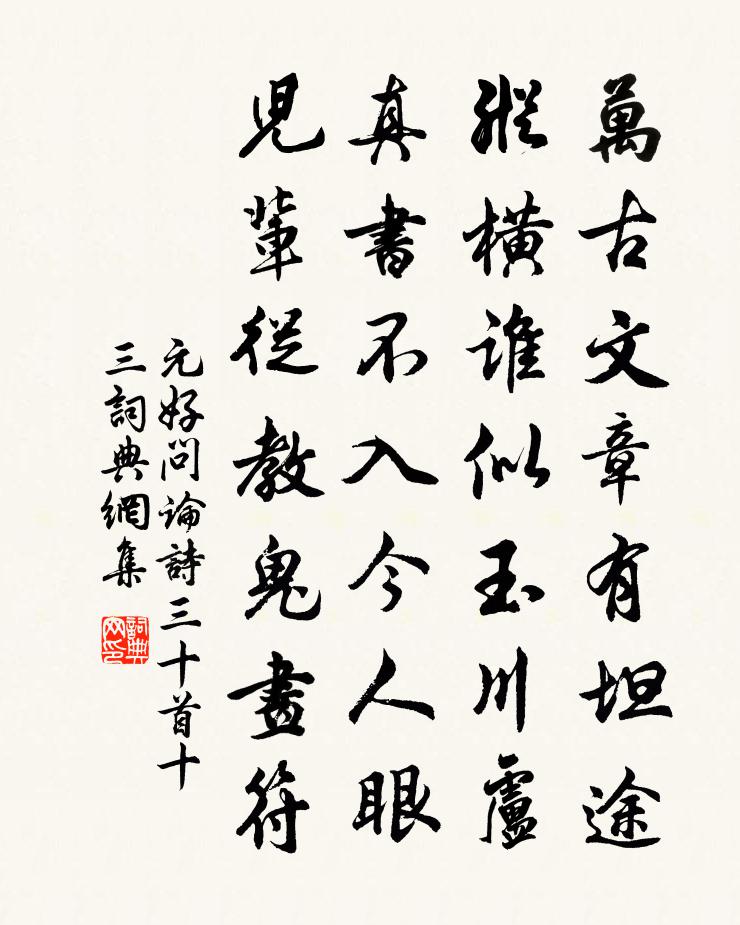 萬古文章有坦途
縱橫誰似玉川盧
真書不入今人眼
兒輩從教鬼畫符
元好問論詩三十首十
三詞典網集
詞典
网印